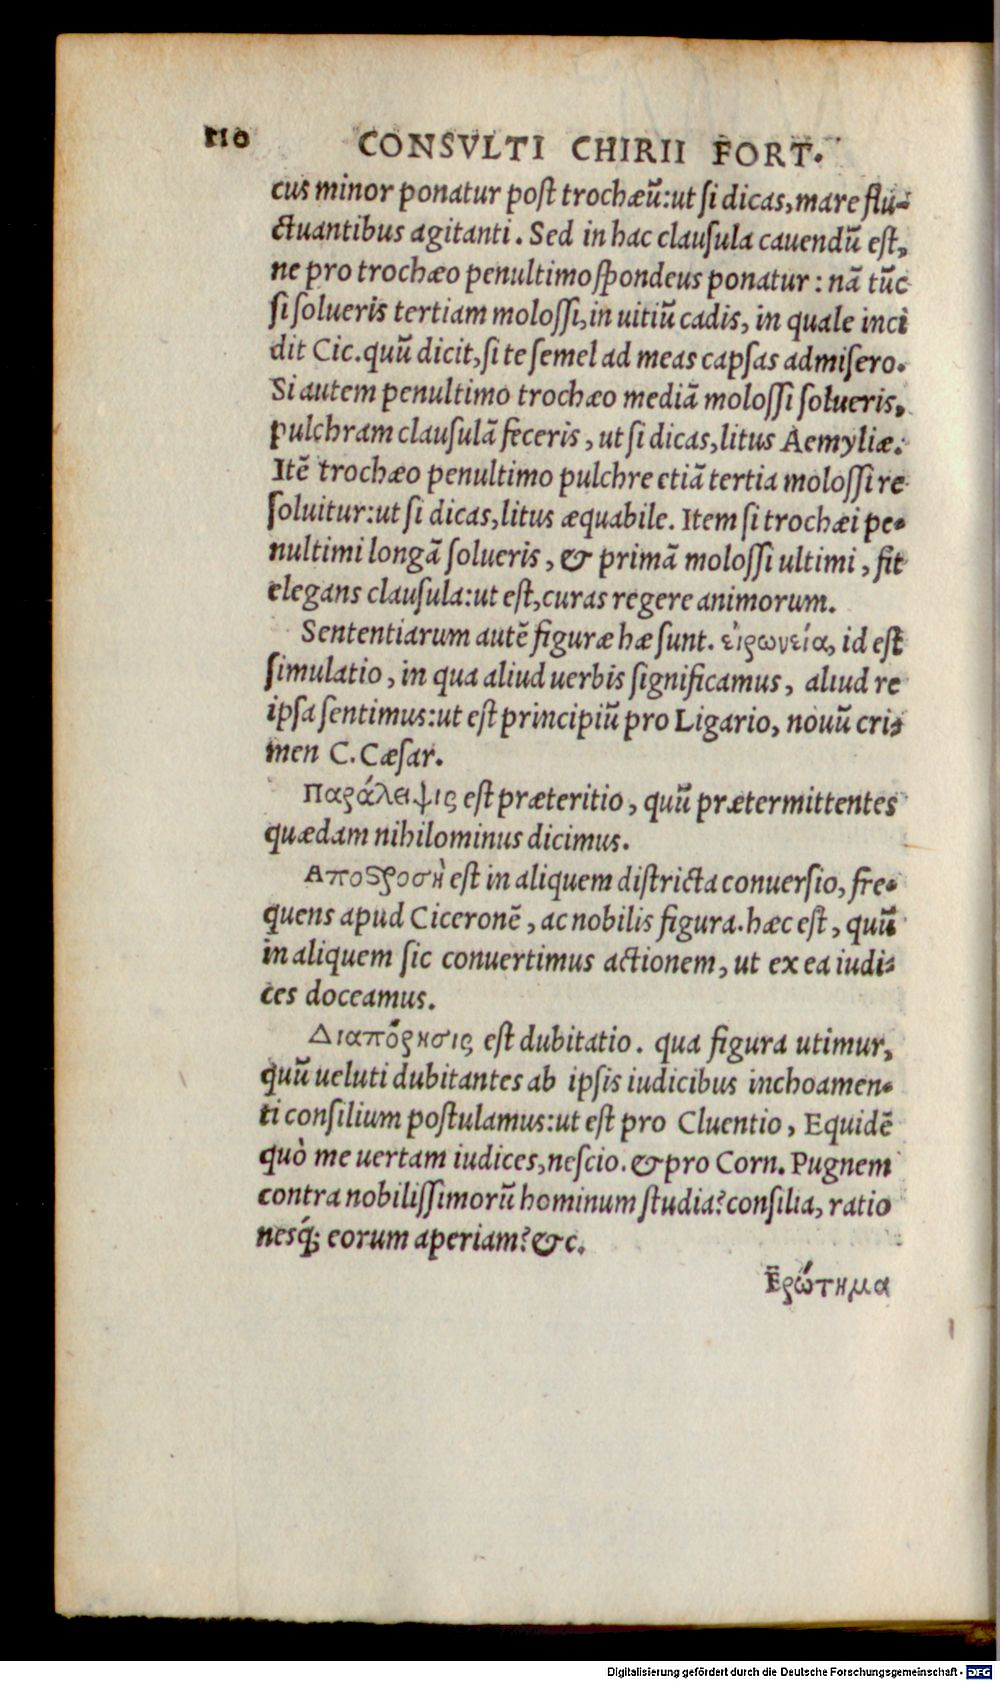 110 CONSVLTI CHIRII FORT.
cus minor ponatur post trochæũ:ut si dicas,mare flu-
ctuantibus agitanti. Sed in hac clausula cauendũ est,
ne pro trochæo penultimo spondeus ponatur: nã tũc
si solueris tertiam molossi,in uitiũ cadis, in quale inci
dit Cic.quũ dicit,si te semel ad meas capsas admisero.
Si autem penultimo trochæo mediã molossi solueris,
pulchram clausulã feceris, ut si dicas,litus Aemyliæ.
Itẽ trochæo penultimo pulchre etiã tertia molossi re
soluitur:ut si dicas,litus æquabile. Item si trochæi pe-
nultimi longã solueris, & primã molossi ultimi, fit
elegans clausula:ut est,curas regere animorum.
Sententiarum autẽ figuræ hæ sunt. εἰρωνεία, id est
simulatio, in qua aliud uerbis significamus, aliud re
ipsa sentimus:ut est principiũ pro Ligario, nouũ cri-
men C. Cæsar.
Παράλειψις est præteritio, quũ prætermittentes
quædam nihilominus dicimus.
Αποϛροσὴ est in aliquem districta conuersio, fre-
quens apud Ciceronẽ, ac nobilis figura.hæc est, quũ
in aliquem sic conuertimus actionem, ut ex ea iudi-
ces doceamus.
Διαπόρησις est dubitatio. qua figura utimur,
quũ ueluti dubitantes ab ipsis iudicibus inchoamen-
ti consilium postulamus:ut est pro Cluentio, Equidẽ
quò me uertam iudices,nescio. & pro Corn. Pugnem
contra nobilissimorũ hominum studia? consilia, ratio
nesq́; eorum aperiam? &c.
Ἐρώτημα
Digitalisierung gefördert durch die Deutsche Forschungsgemeinschaft - DFG